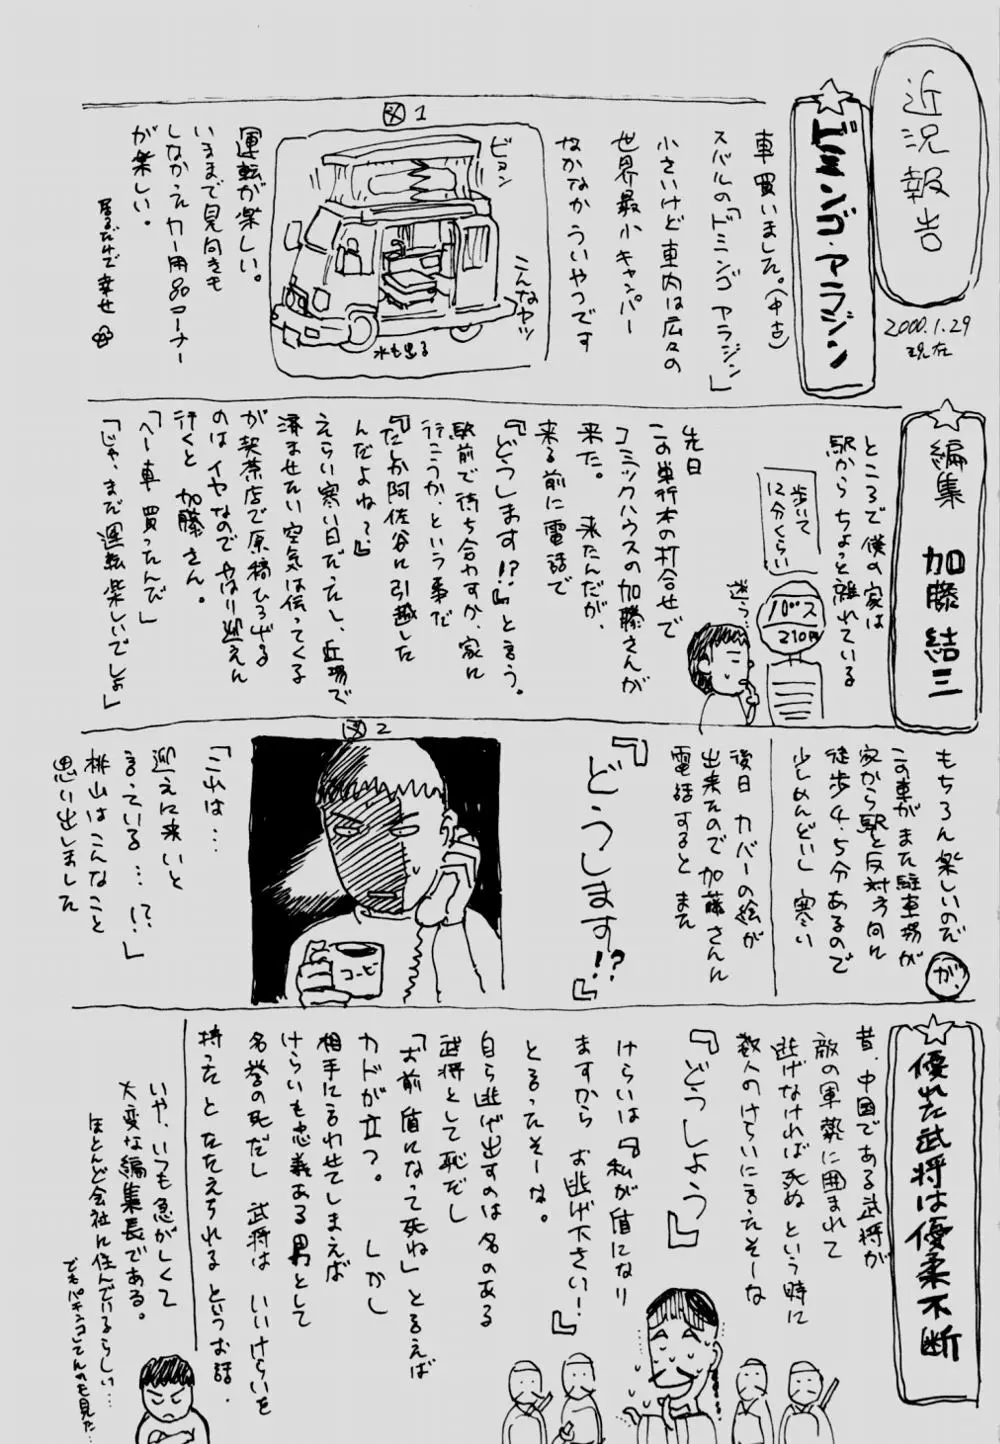 近況報告
2000.1.29
現在
ドミンゴ・アラジン
車買いました。(中古)
スバルの「ドミンゴ アラジン」
小さいけど車内は広々の
世界最小キャンパー
なかなかういやつです
図1
ビヨン
こんなヤツ
水も出る
運転が楽しい。
いままで見向きも
しなかったカー用品コーナー
が楽しい。
居るだけで幸せ
編集 加藤結三
ところで僕の家は
駅からちょっと離れている
歩いて
12分くらい
バス
210円
迷う…
先日
この単行本の打合せで
コミックハウスの加藤さんが
来た。来たんだが、
来る前に電話で
『どうします!?』と言う。
駅前で待ち合わすか、家に
行こうか、という事だ
『たしか阿佐谷に引越した
んだよね?』
えらい寒い日だったし、近場で
済ませたい空気は伝ってくる
が喫茶店で原稿ひろげる
のはイヤなのでやはり迎えに
行くと 加藤さん。
「へー車買ったんだ」
「じゃ、まだ運転楽しいでしょ」
もちろん楽しいのだ
が、
この車がまた駐車場が
家から駅と反対方向に
徒歩4.5分あるので
少しめんどいし 寒い
後日 カバーの絵が
出来たので加藤さんに
電話すると また
『どうします!?』
図2
コーヒー
「これは…
迎えに来いと
言っている…!?」
桃山はこんなこと
思い出しました
優れた武将は優柔不断
昔、中国である武将が
敵の軍勢に囲まれて
逃げなければ死ぬ という時に
数人のけらいに言ったそーな
『どうしよう』
けらいは『私が盾になり
ますから お逃げ下さい!』
と言ったそーな。
自ら逃げ出すのは名のある
武将として恥だし
「お前 盾になって死ね」と言えば
カドが立つ。しかし
相手に言わせてしまえば
けらいも忠義ある男として
名誉の死だし 武将は いいけらいを
持ったと たたえられる というお話.
いや、いつも急がしくて
大変な編集長である。
ほとんど会社に住んでいるらしい…
でもパチンコしてんのも見た…